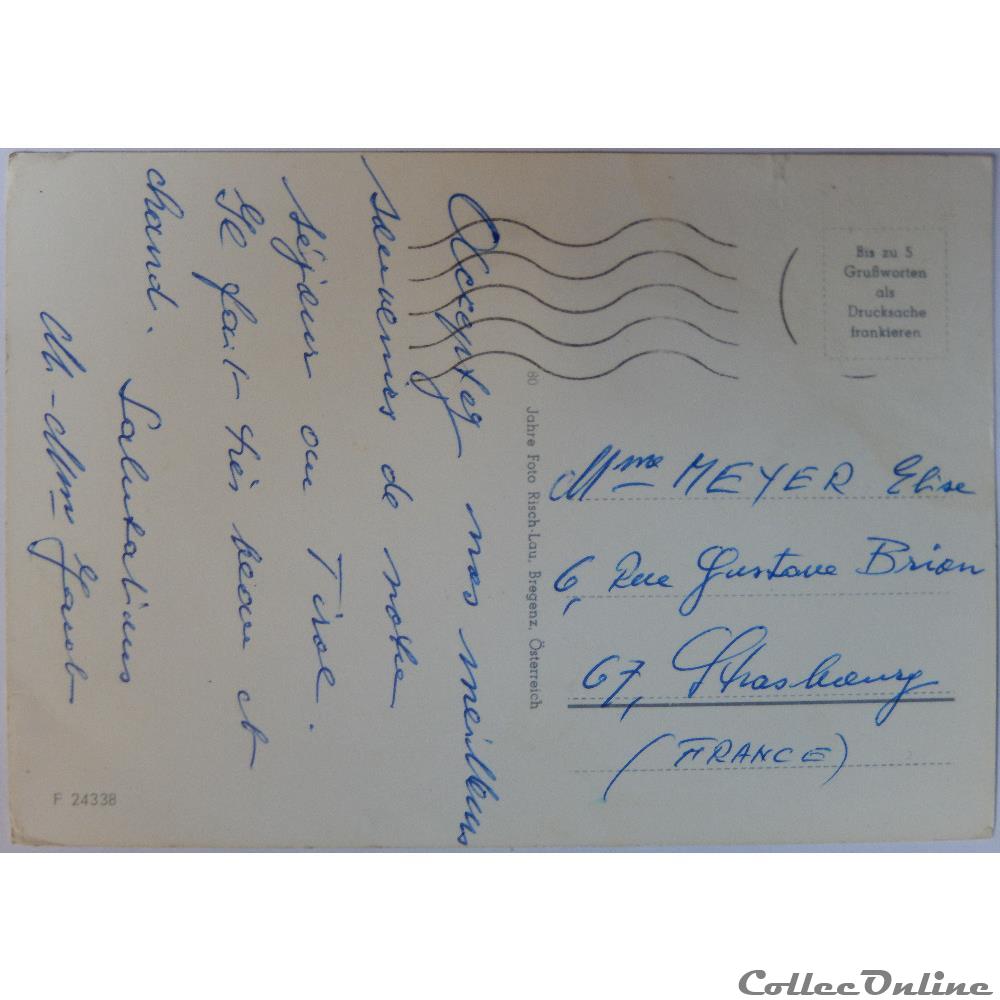 Acceptez nos meilleurs
souvenirs de notre
séjour au Tirol.
Il fait très beau et
chaud.
Salutations
M. - Mme Jacob
Bis zu 5
Grußworten
als
Drucksache
frankieren
80 Jahre Foto Risch-Lau, Bregenz, Österreich
Mme MEYER Elise
6, Rue Gustave Brion
67, Strasbourg
(FRANCE)
F 24338
CollecOnline